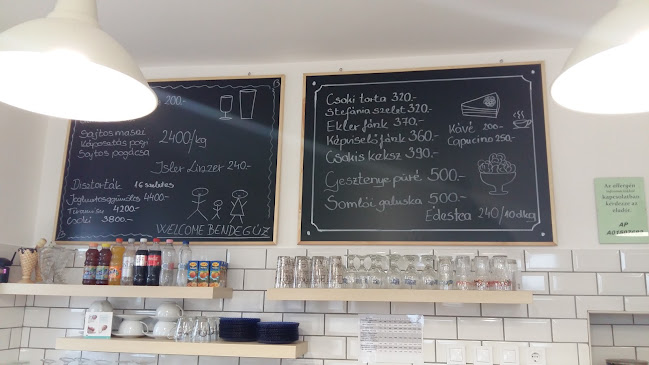 200.-
Sajtos masni
Káposztás pogi
Sajtos pogácsa
2400/kg
Isler Linzer 240.-
Dísztorták 16 szeletes
Joghurtosgyümölcs 4400.-
Tiramisu 4200.-
Csoki 3800.-
WELCOME BENDEGÚZ
Csoki torta 320.-
Stefánia szelet 320.-
Ekler fánk 370.-
Képviselő fánk 360.-
Csokis keksz 390.-
Gesztenye püré 500.-
Somlói galuska 500.-
Kávé 200.-
Capucino 250.-
Édestea 240/10dkg
Az allergén
kapcsolatban
kérdezze az
eladót.